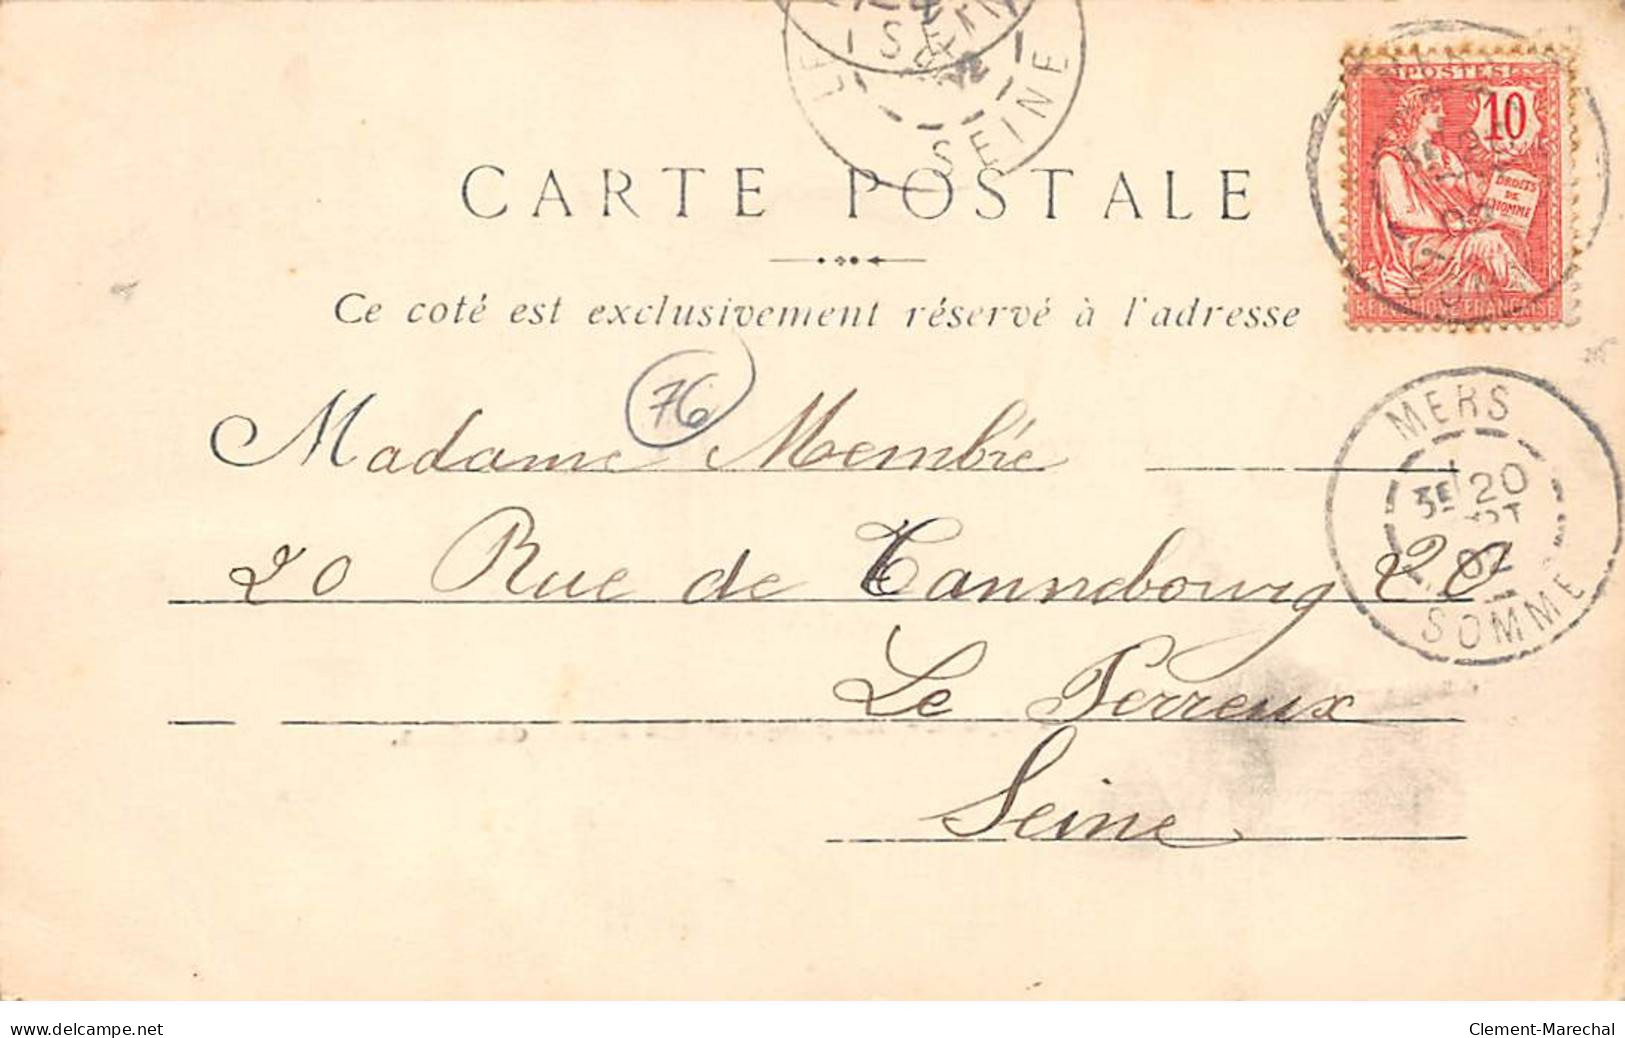 SEINE
CARTE POSTALE
Ce coté est exclusivement réservé à l'adresse
POSTES
10
DROITS
DE
L'HOMME
REPUBLIQUE FRANÇAISE
76
Madame Membrée
20 Rue de Cannebourg 20
Le Perreux
Seine
MERS
20
02
SOMME
www.delcampe.net
Clement-Marechal